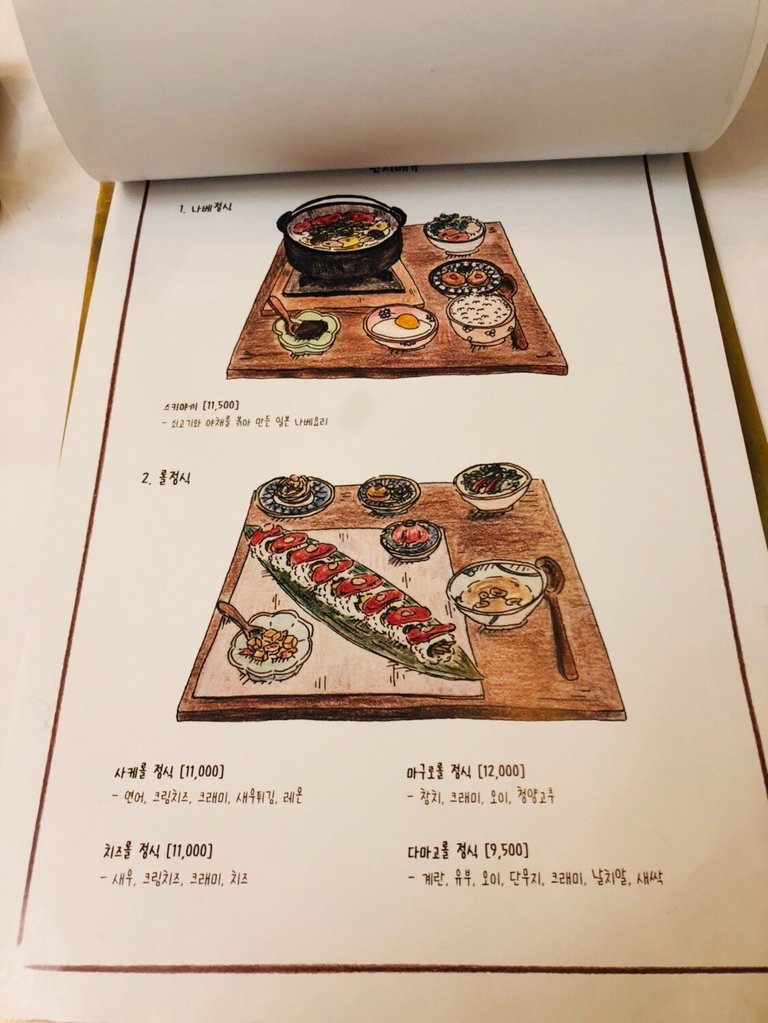 1. 나베정식
스키야끼 [11,500]
- 쇠고기와 야채를 볶아 만든 일본 나베요리
2. 롤정식
사케롤 정식 [11,000]
- 연어, 크림치즈, 크래미, 새우튀김, 레몬
마구로롤 정식 [12,000]
- 참치, 크래미, 오이, 청양고추
치즈롤 정식 [11,000]
- 새우, 크림치즈, 크래미, 치즈
다마고롤 정식 [9,500]
- 계란, 유부, 오이, 단무지, 크래미, 날치알, 새싹